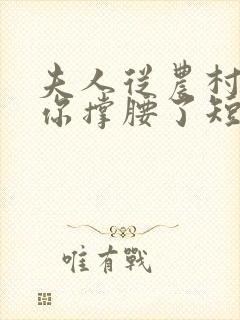 夫人從農村
你撐腰了短
唯有戰